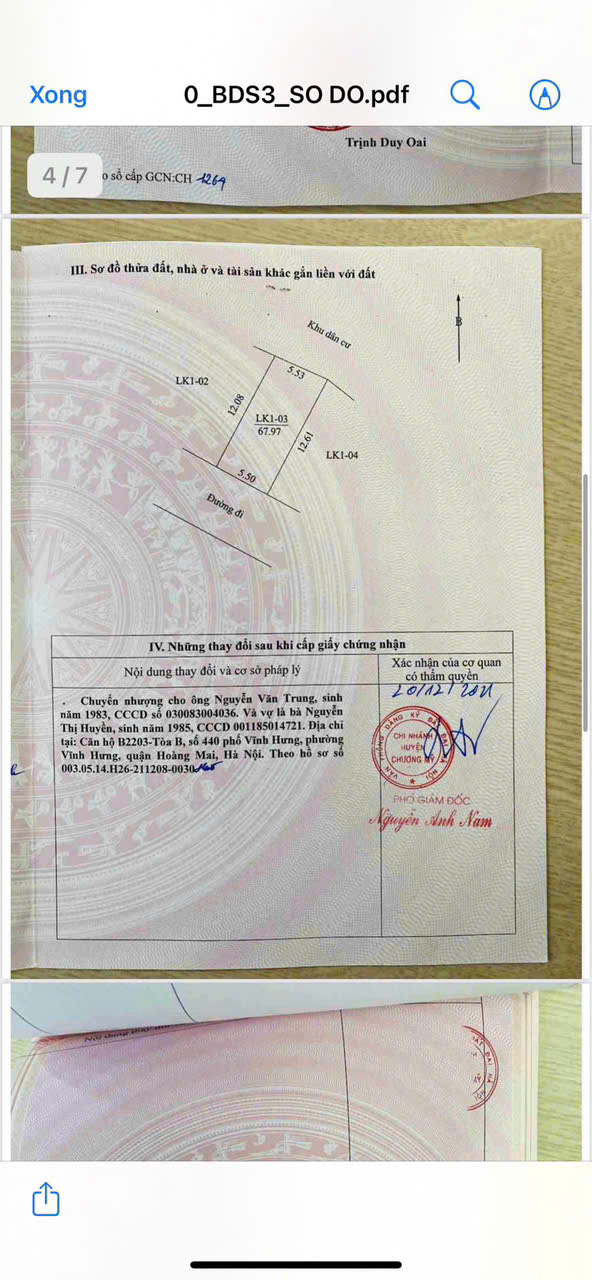 Xong
0_BDS3_SO DO.pdf
Trịnh Duy Oai
4 / 7
o sổ cấp GCN:CH 1264
III. Sơ đồ thửa đất, nhà ở và tài sản khác gắn liền với đất
B
Khu dân cư
LK1-02
5.53
12.08
LK1-03
67.97
12.61
LK1-04
5.50
Đường đi
IV. Những thay đổi sau khi cấp giấy chứng nhận
Nội dung thay đổi và cơ sở pháp lý
Xác nhận của cơ quan
có thẩm quyền
Chuyển nhượng cho ông Nguyễn Văn Trung, sinh
năm 1983, CCCD số 030083004036. Và vợ là bà Nguyễn
Thị Huyền, sinh năm 1985, CCCD 001185014721. Địa chỉ
tại: Căn hộ B2203-Tòa B, số 440 phố Vĩnh Hưng, phường
Vĩnh Hưng, quận Hoàng Mai, Hà Nội. Theo hồ sơ số
003.05.14.H26-211208-0030
20/12/2021
VĂN PHÒNG ĐĂNG KÝ ĐẤT ĐAI HÀ NỘI
CHI NHÁNH
HUYỆN
CHƯƠNG MỸ
PHÓ GIÁM ĐỐC
Nguyễn Anh Nam
Nội dung thay đổi
ĐẤT ĐAI HÀ
NỘI